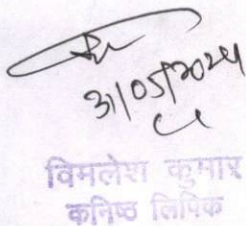 31/05/2024
विमलेश कुमार
कनिष्ठ लिपिक